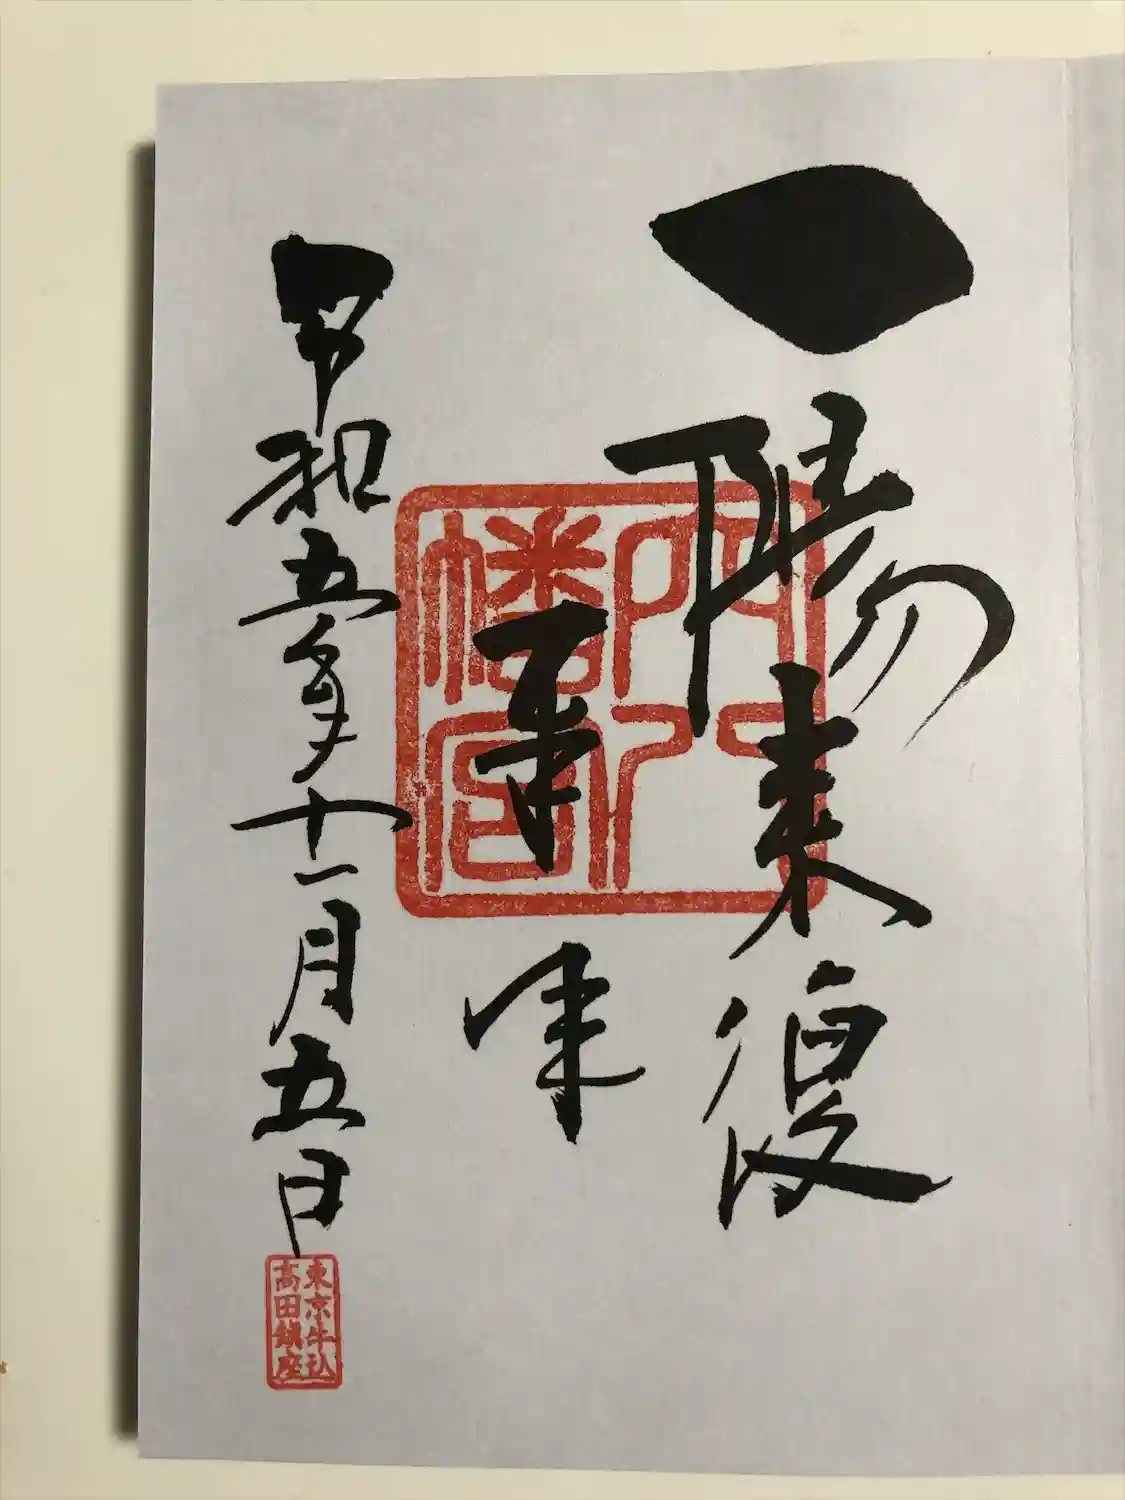 一陽来復
奉拝
令和五歳十一月五日
穴八
幡宮
東京牛込
高田鎮座